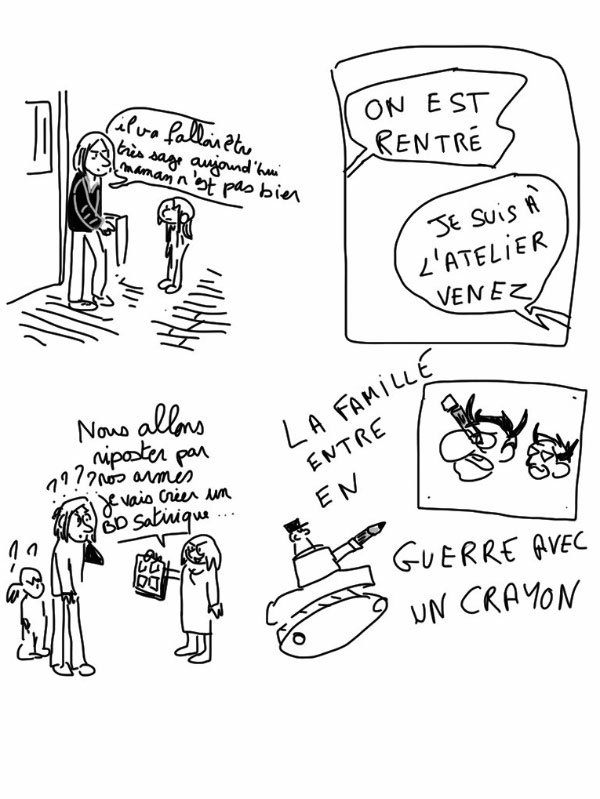 il va falloir être
très sage aujourd'hui
maman n'est pas bien
ON EST
RENTRÉ
JE SUIS À
L'ATELIER
VENEZ
Nous allons
riposter par
nos armes
je vais créer un
BD Satirique...
????
??
LA FAMILLE
ENTRE
EN
GUERRE AVEC
UN CRAYON